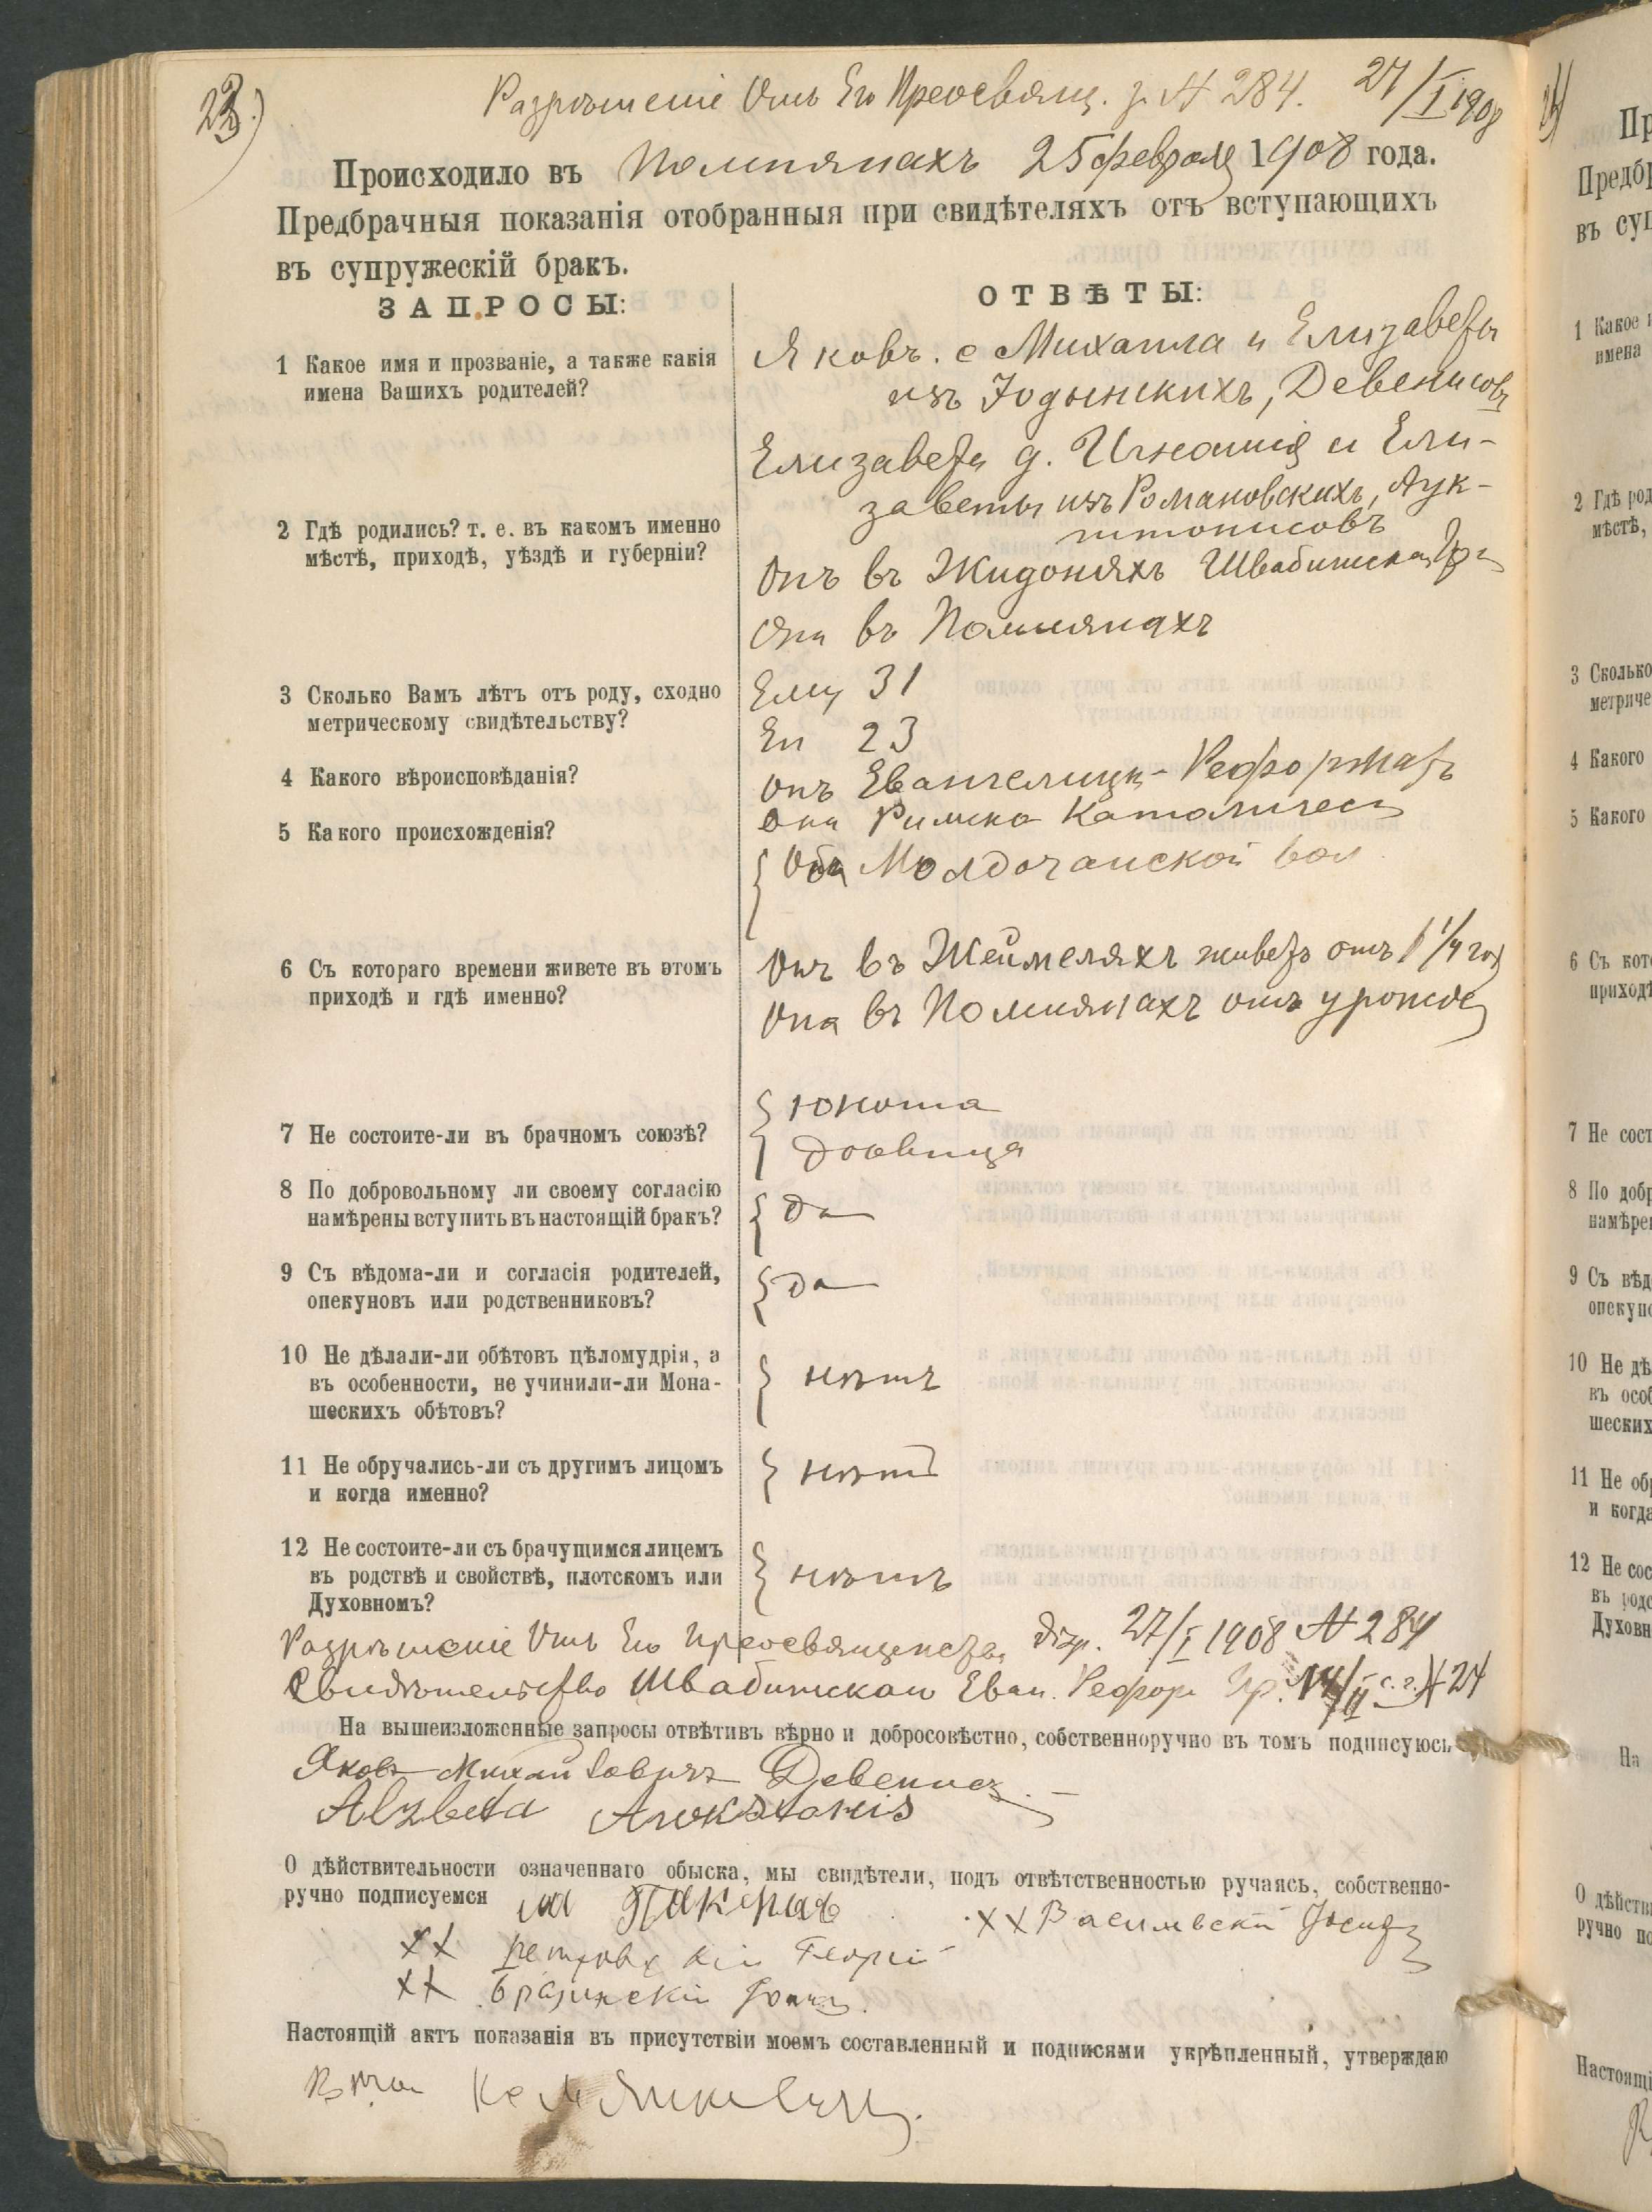 23.)
Разрѣшеніе Отъ Его Преосвящ. з. № 284. 27/I 1908
Происходило въ Помпянахъ 25 февраля 1908 года.
Предбрачныя показанія отобранныя при свидѣтеляхъ отъ вступающихъ
въ супружескій бракъ.
ЗАПРОСЫ:
ОТВѢТЫ:
1 Какое имя и прозваніе, а также какія
имена Вашихъ родителей?
Яковъ. с Михаила и Елизаветы
изъ Іодынскихъ, Девенисовъ
Елизавета д. Игнатія и Ели-
заветы изъ Романовскихъ, Аук-
штонисовъ
2 Гдѣ родились? т. е. въ какомъ именно
мѣстѣ, приходѣ, уѣздѣ и губерніи?
Онъ въ Жидоняхъ Швабишск
Она въ Помпянахъ
3 Сколько Вамъ лѣтъ отъ роду, сходно
метрическому свидѣтельству?
Ему 31
Ей 23
4 Какого вѣроисповѣданія?
Онъ Евангелицк-Реформатъ
Она Римско Католическ
5 Какого происхожденія?
Оба Молдочанской вол.
6 Съ котораго времени живете въ этомъ
приходѣ и гдѣ именно?
Онъ въ Жеймеляхъ живетъ отъ 1 1/4 год
Она въ Помпянахъ отъ урожде
7 Не состоите-ли въ брачномъ союзѣ?
юноша
дѣвица
8 По добровольному ли своему согласію
намѣрены вступить въ настоящій бракъ?
да
9 Съ вѣдома-ли и согласія родителей,
опекуновъ или родственниковъ?
да
10 Не дѣлали-ли обѣтовъ цѣломудрія, а
въ особенности, не учинили-ли Мона-
шескихъ обѣтовъ?
нѣтъ
11 Не обручались-ли съ другимъ лицомъ
и когда именно?
нѣтъ
12 Не состоите-ли съ брачущимся лицемъ
въ родствѣ и свойствѣ, плотскомъ или
Духовномъ?
нѣтъ
Разрѣшеніе Отъ Его Преосвященства 27/I 1908 № 284
Свидѣтельство Швабишскаго Еван. Рефор 14/II с. г. № 24
На вышеизложенные запросы отвѣтивъ вѣрно и добросовѣстно, собственноручно въ томъ подписуюсь
Яковъ Михайловичъ Девенисъ
Alzbeta
О дѣйствительности означеннаго обыска, мы свидѣтели, подъ отвѣтственностью ручаясь, собственно-
ручно подписуемся
xx Василевскій Іосифъ
xx Петровскій Георгій
xx Іоаннъ
Настоящій актъ показанія въ присутствіи моемъ составленный и подписями укрѣпленный, утверждаю